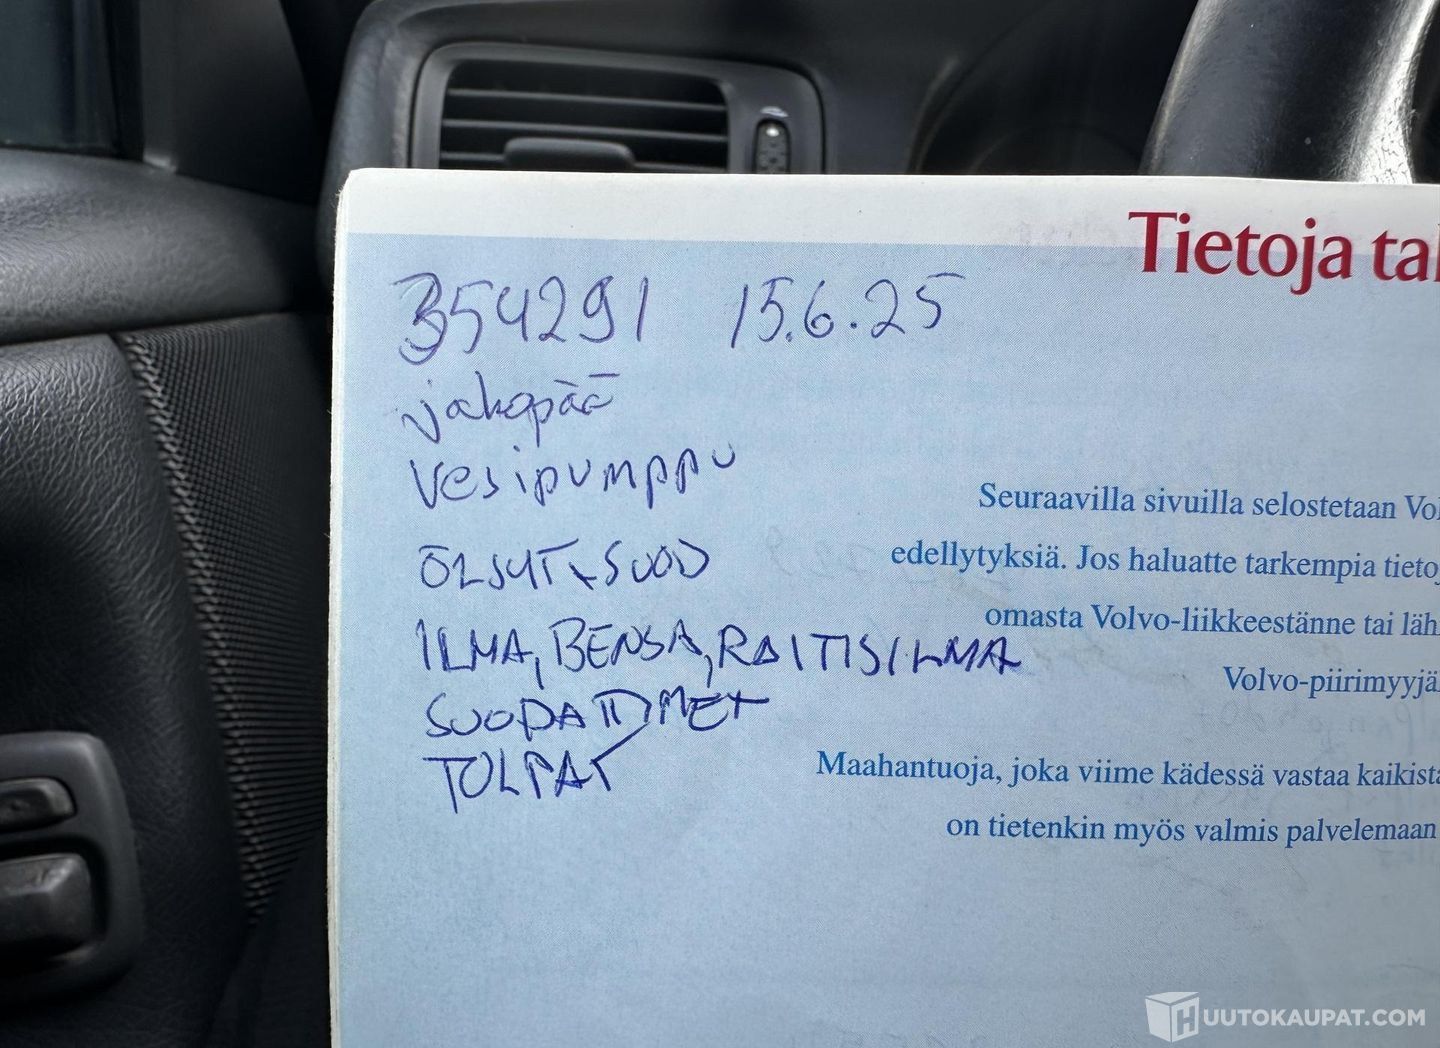 Tietoja tal
354291 15.6.25
jakopää
vesipumppu
Seuraavilla sivuilla selostetaan Vol
ÖLJYT+SUOD
edellytyksiä. Jos haluatte tarkempia tietoj
omasta Volvo-liikkeestänne tai lähi
ILMA, BENSA, RAITISILMA
Volvo-piirimyyjä
SUODATTIMET
TULPAT
Maahantuoja, joka viime kädessä vastaa kaikista
on tietenkin myös valmis palvelemaan
HUUTOKAUPAT.COM